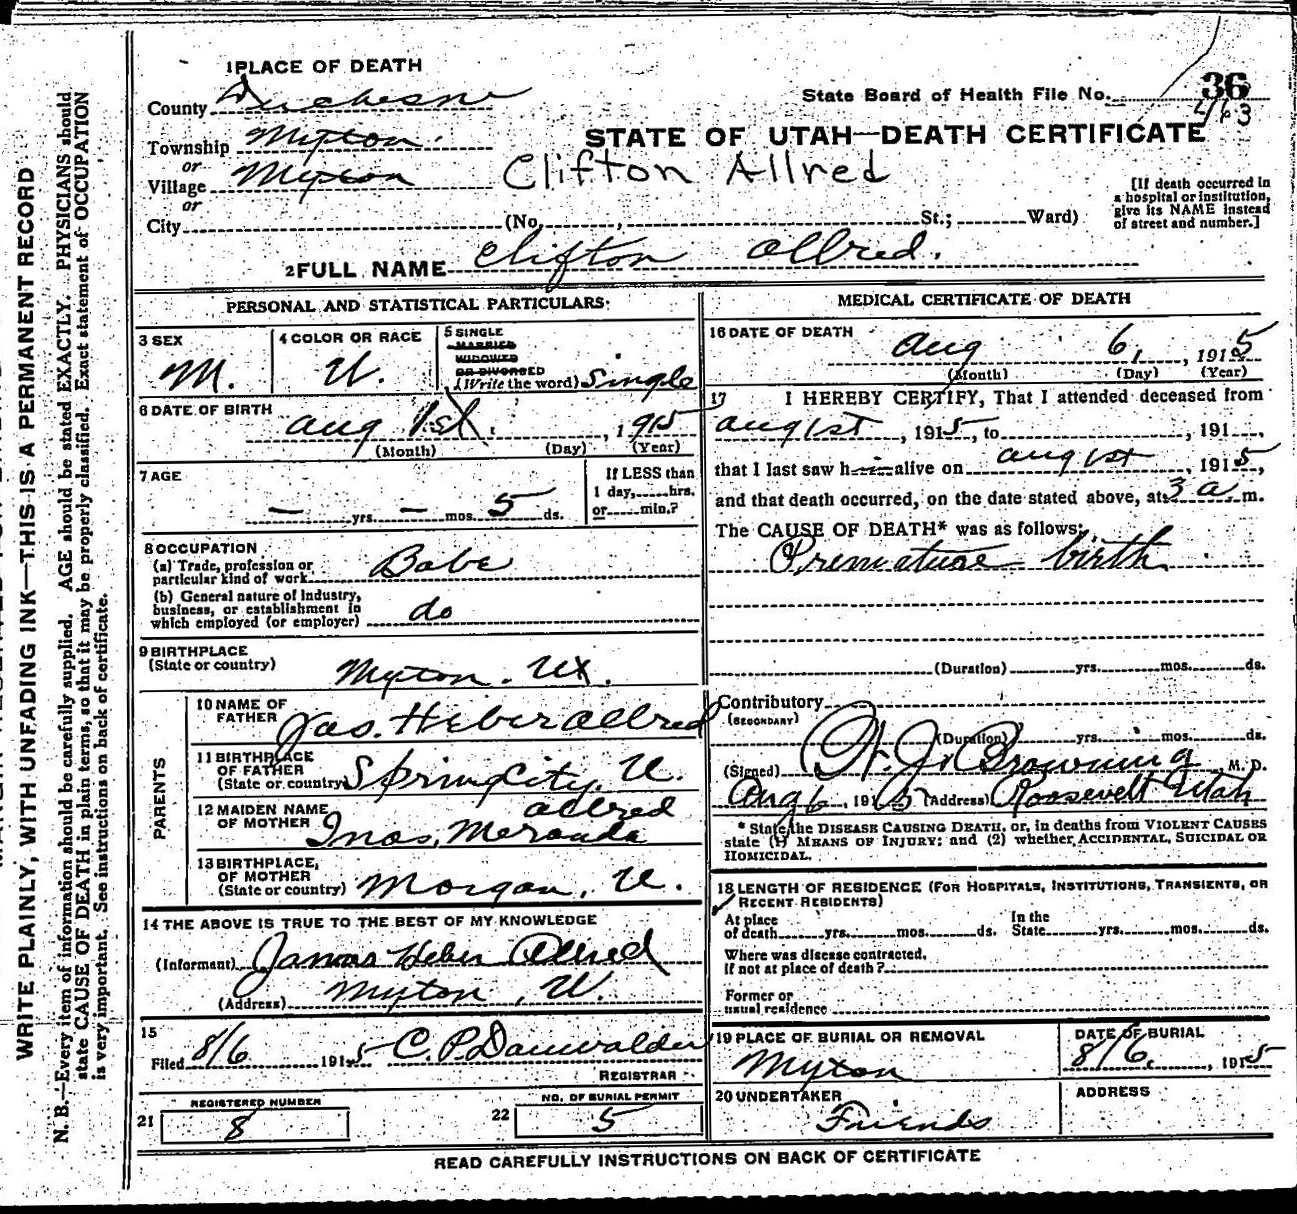 1 PLACE OF DEATH
County Duchesne
Township Myton.
or
Village Myton
or
City
State Board of Health File No. 36
463
STATE OF UTAH—DEATH CERTIFICATE
Clifton Allred
[If death occurred in
a hospital or institution,
give its NAME instead
of street and number.]
(No. , St.; Ward)
2 FULL NAME Clifton Allred.
PERSONAL AND STATISTICAL PARTICULARS:
3 SEX
M.
4 COLOR OR RACE
W.
5 SINGLE
MARRIED
WIDOWED
OR DIVORCED
(Write the word) Single
6 DATE OF BIRTH
Aug 1st. , 1915
(Month) (Day) (Year)
7 AGE
— yrs. — mos. 5 ds.
If LESS than
1 day, hrs.
or min.?
8 OCCUPATION
(a) Trade, profession or
particular kind of work Babe
(b) General nature of Industry,
business, or establishment in
which employed (or employer) do
9 BIRTHPLACE
(State or country)
Myton. Ut.
PARENTS
10 NAME OF
FATHER Jas. Heber Allred
11 BIRTHPLACE
OF FATHER
(State or country) Spring City, U.
12 MAIDEN NAME
OF MOTHER Allred
Meranda
13 BIRTHPLACE,
OF MOTHER
(State or country) Morgan, U.
14 THE ABOVE IS TRUE TO THE BEST OF MY KNOWLEDGE
(Informant) James Heber Allred
(Address) Myton, U.
15
Filed 8/6 1915 C. P.
REGISTRAR
21 REGISTERED NUMBER
8
22 NO. OF BURIAL PERMIT
5
MEDICAL CERTIFICATE OF DEATH
16 DATE OF DEATH
Aug 6, , 1915
(Month) (Day) (Year)
17 I HEREBY CERTIFY, That I attended deceased from
Aug 1st , 1915, to , 191 ,
that I last saw h alive on Aug 1st , 1915,
and that death occurred, on the date stated above, at 3 a. m.
The CAUSE OF DEATH* was as follows:
Premature birth.
(Duration) yrs. mos. ds.
Contributory
(SECONDARY)
(Duration) yrs. mos. ds.
(Signed) Browning M. D.
Aug 6, 1915 (Address) Roosevelt Utah
* State the DISEASE CAUSING DEATH, or, in deaths from VIOLENT CAUSES
state (1) MEANS OF INJURY; and (2) whether ACCIDENTAL, SUICIDAL OR
HOMICIDAL.
18 LENGTH OF RESIDENCE (FOR HOSPITALS, INSTITUTIONS, TRANSIENTS, OR
RECENT RESIDENTS)
At place
of death yrs. mos. ds. In the
State yrs. mos. ds.
Where was disease contracted,
if not at place of death?
Former or
usual residence
19 PLACE OF BURIAL OR REMOVAL
Myton
DATE OF BURIAL
8/6. , 1915
20 UNDERTAKER
Friends
ADDRESS
READ CAREFULLY INSTRUCTIONS ON BACK OF CERTIFICATE
WRITE PLAINLY, WITH UNFADING INK—THIS IS A PERMANENT RECORD
N. B.—Every item of information should be carefully supplied. AGE should be stated EXACTLY. PHYSICIANS should
state CAUSE OF DEATH in plain terms, so that it may be properly classified. Exact statement of OCCUPATION
is very important. See instructions on back of certificate.